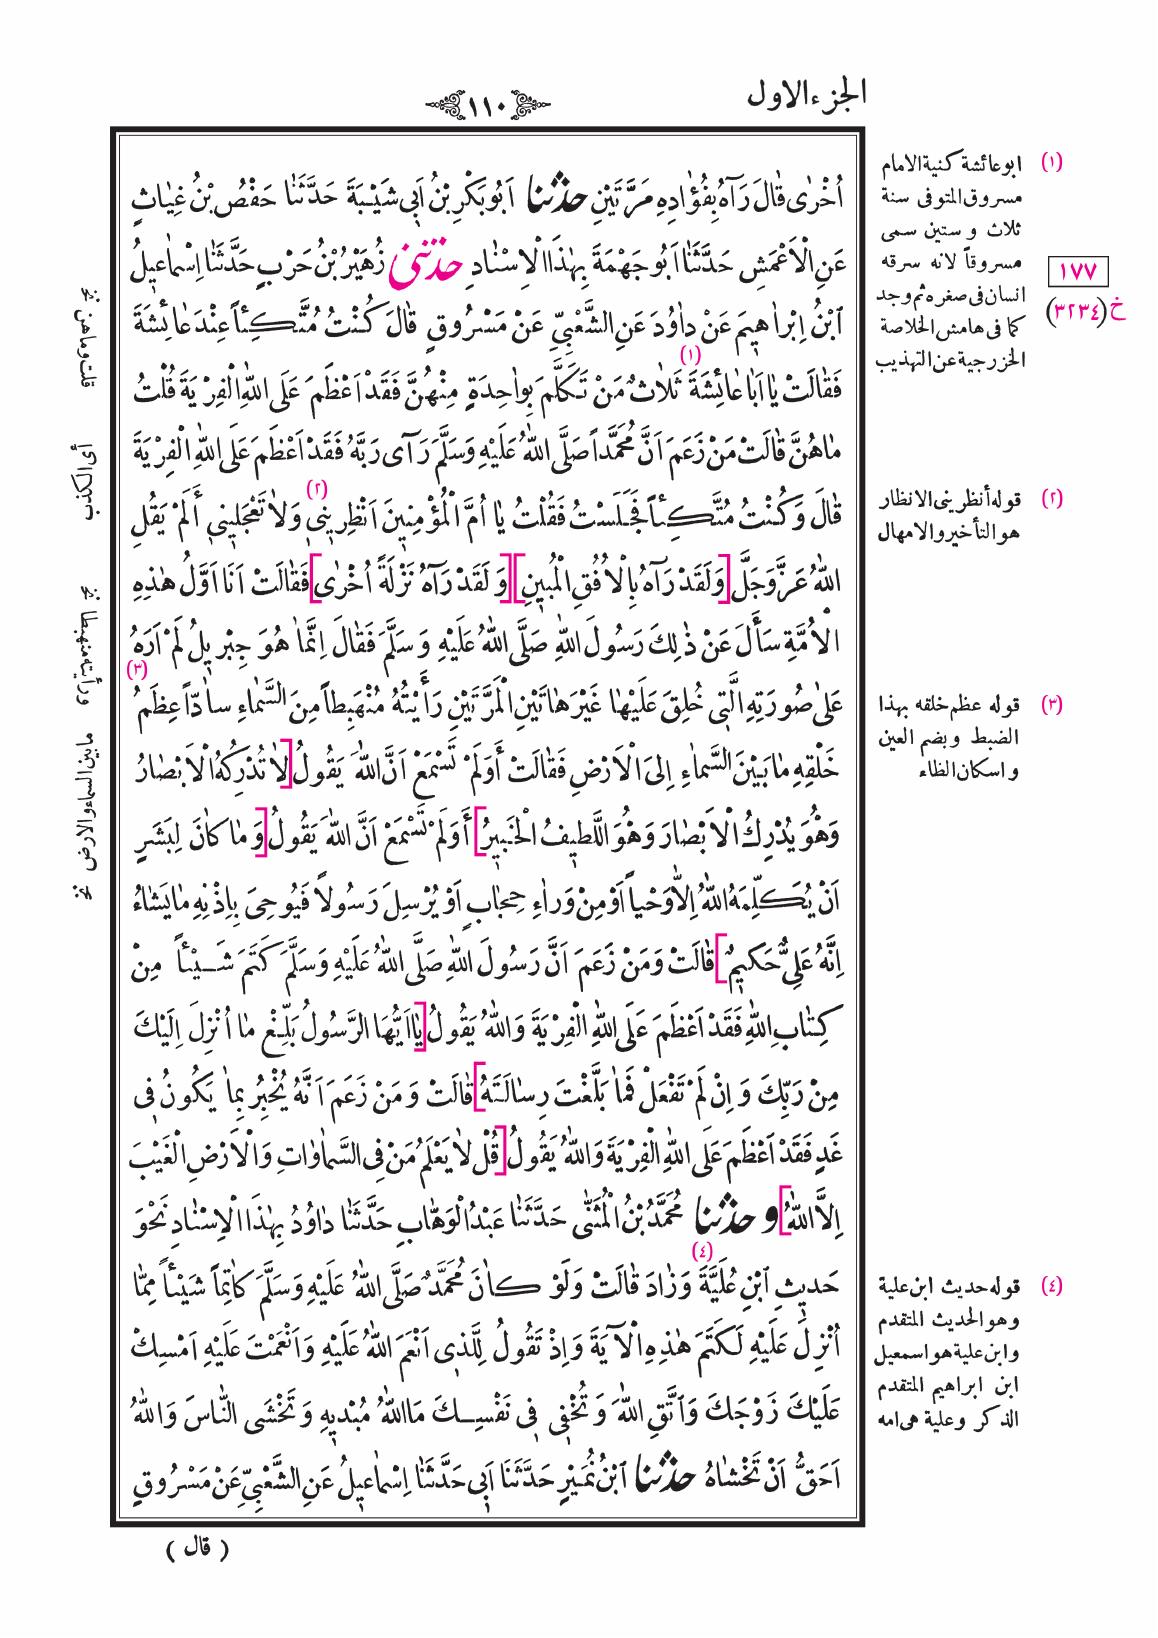 الجزء الاول
١١٠
اُخْرٰى قَالَ رَآهُ بِفُؤَادِهِ مَرَّتَيْنِ حدثنا اَبُو بَكْرِ بْنُ اَبِى شَيْبَةَ حَدَّثَنَا حَفْصُ بْنُ غِيَاثٍ
عَنِ الْاَعْمَشِ حَدَّثَنَا اَبُو جَهْمَةَ بِهٰذَا الْاِسْنَادِ حدثنى زُهَيْرُ بْنُ حَرْبٍ حَدَّثَنَا اِسْمَاعِيلُ
ابْنُ اِبْرَاهِيمَ عَنْ دَاوُدَ عَنِ الشَّعْبِىِّ عَنْ مَسْرُوقٍ قَالَ كُنْتُ مُتَّكِئاً عِنْدَ عَائِشَةَ
فَقَالَتْ يَا اَبَا عَائِشَةَ (١) ثَلَاثٌ مَنْ تَكَلَّمَ بِوَاحِدَةٍ مِنْهُنَّ فَقَدْ اَعْظَمَ عَلَى اللهِ الْفِرْيَةَ قُلْتُ
مَا هُنَّ قَالَتْ مَنْ زَعَمَ اَنَّ مُحَمَّداً صَلَّى اللهُ عَلَيْهِ وَسَلَّمَ رَآى رَبَّهُ فَقَدْ اَعْظَمَ عَلَى اللهِ الْفِرْيَةَ
قَالَ وَكُنْتُ مُتَّكِئاً فَجَلَسْتُ فَقُلْتُ يَا اُمَّ الْمُؤْمِنِينَ اَنْظِرِينِى (٢) وَلَا تَعْجَلِينِى أَلَمْ يَقُلِ
اللهُ عَزَّ وَجَلَّ [وَلَقَدْ رَآهُ بِالْاُفُقِ الْمُبِينِ] [وَلَقَدْ رَآهُ نَزْلَةً اُخْرٰى] فَقَالَتْ اَنَا اَوَّلُ هٰذِهِ
الْاُمَّةِ سَأَلَ عَنْ ذٰلِكَ رَسُولَ اللهِ صَلَّى اللهُ عَلَيْهِ وَسَلَّمَ فَقَالَ اِنَّمَا هُوَ جِبْرِيلُ لَمْ اَرَهُ
عَلٰى صُورَتِهِ الَّتِى خُلِقَ عَلَيْهَا غَيْرَ هَاتَيْنِ الْمَرَّتَيْنِ رَأَيْتُهُ مُنْهَبِطاً مِنَ السَّمَاءِ سَادّاً عِظَمُ (٣)
خَلْقِهِ مَا بَيْنَ السَّمَاءِ اِلَى الْاَرْضِ فَقَالَتْ أَوَلَمْ تَسْمَعْ اَنَّ اللهَ يَقُولُ [لَا تُدْرِكُهُ الْاَبْصَارُ
وَهُوَ يُدْرِكُ الْاَبْصَارَ وَهُوَ اللَّطِيفُ الْخَبِيرُ] أَوَلَمْ تَسْمَعْ اَنَّ اللهَ يَقُولُ [وَمَا كَانَ لِبَشَرٍ
اَنْ يُكَلِّمَهُ اللهُ اِلَّا وَحْياً اَوْ مِنْ وَرَاءِ حِجَابٍ اَوْ يُرْسِلَ رَسُولاً فَيُوحِىَ بِاِذْنِهِ مَا يَشَاءُ
اِنَّهُ عَلِىٌّ حَكِيمٌ] قَالَتْ وَمَنْ زَعَمَ اَنَّ رَسُولَ اللهِ صَلَّى اللهُ عَلَيْهِ وَسَلَّمَ كَتَمَ شَيْئاً مِنْ
كِتَابِ اللهِ فَقَدْ اَعْظَمَ عَلَى اللهِ الْفِرْيَةَ وَاللهُ يَقُولُ [يَا اَيُّهَا الرَّسُولُ بَلِّغْ مَا اُنْزِلَ اِلَيْكَ
مِنْ رَبِّكَ وَاِنْ لَمْ تَفْعَلْ فَمَا بَلَّغْتَ رِسَالَتَهُ] قَالَتْ وَمَنْ زَعَمَ اَنَّهُ يُخْبِرُ بِمَا يَكُونُ فِى
غَدٍ فَقَدْ اَعْظَمَ عَلَى اللهِ الْفِرْيَةَ وَاللهُ يَقُولُ [قُلْ لَا يَعْلَمُ مَنْ فِى السَّمَاوَاتِ وَالْاَرْضِ الْغَيْبَ
اِلَّا اللهُ] و حدثنا مُحَمَّدُ بْنُ الْمُثَنّٰى حَدَّثَنَا عَبْدُ الْوَهَّابِ حَدَّثَنَا دَاوُدُ بِهٰذَا الْاِسْنَادِ نَحْوَ
حَدِيثِ ابْنِ عُلَيَّةَ (٤) وَزَادَ قَالَتْ وَلَوْ كَانَ مُحَمَّدٌ صَلَّى اللهُ عَلَيْهِ وَسَلَّمَ كَاتِماً شَيْئاً مِمَّا
اُنْزِلَ عَلَيْهِ لَكَتَمَ هٰذِهِ الْآيَةَ وَاِذْ تَقُولُ لِلَّذِى اَنْعَمَ اللهُ عَلَيْهِ وَاَنْعَمْتَ عَلَيْهِ اَمْسِكْ
عَلَيْكَ زَوْجَكَ وَاتَّقِ اللهَ وَتُخْفِى فِى نَفْسِكَ مَا اللهُ مُبْدِيهِ وَتَخْشَى النَّاسَ وَاللهُ
اَحَقُّ اَنْ تَخْشَاهُ حدثنا ابْنُ نُمَيْرٍ حَدَّثَنَا اَبِى حَدَّثَنَا اِسْمَاعِيلُ عَنِ الشَّعْبِىِّ عَنْ مَسْرُوقٍ
( قال )
(١) ابو عائشة كنية الامام
مسروق المتوفى سنة
ثلاث و ستين سمى
مسروقاً لانه سرقه
انسان فى صغره ثم وجد
كما فى هامش الخلاصة
الخزرجية عن التهذيب
١٧٧
خ (٣٢٣٤)
(٢) قوله أنظرينى الانظار
هو التأخير والامهال
(٣) قوله عظم خلقه بهذا
الضبط وبضم العين
و اسكان الظاء
(٤) قوله حديث ابن علية
وهو الحديث المتقدم
وابن علية هو اسمعيل
ابن ابراهيم المتقدم
الذكر وعلية هى امه
قلت وما هن نخ
أى الكذب
ورأيته منهبطا نخ
ما بين السماء والارض نخ